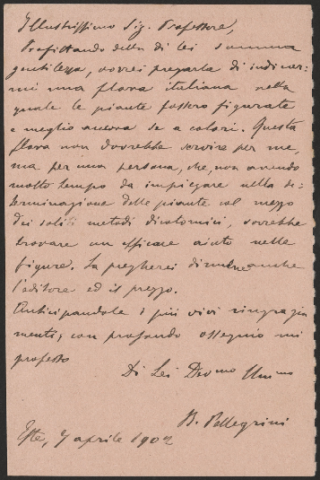 Illustrissimo Sig. Professore,
Profittando della di lei somma
gentilezza, vorrei pregarla di indicar-
mi una flora italiana nella
quale le piante fossero figurate
e meglio ancora se a colori. Questa
flora non dovrebbe servire per me,
ma per una persona, che, non avendo
molto tempo da impiegare nella de-
terminazione delle piante col mezzo
dei soliti metodi dicotomici, vorrebbe
trovare un efficace aiuto nelle
figure. La pregherei anche
l'editore ed il prezzo.
Anticipandole i più vivi ringrazia
menti, con profondo ossequio mi
professo
Di Lei Devmo Umimo
B. Pellegrini
Este, 7 aprile 1902